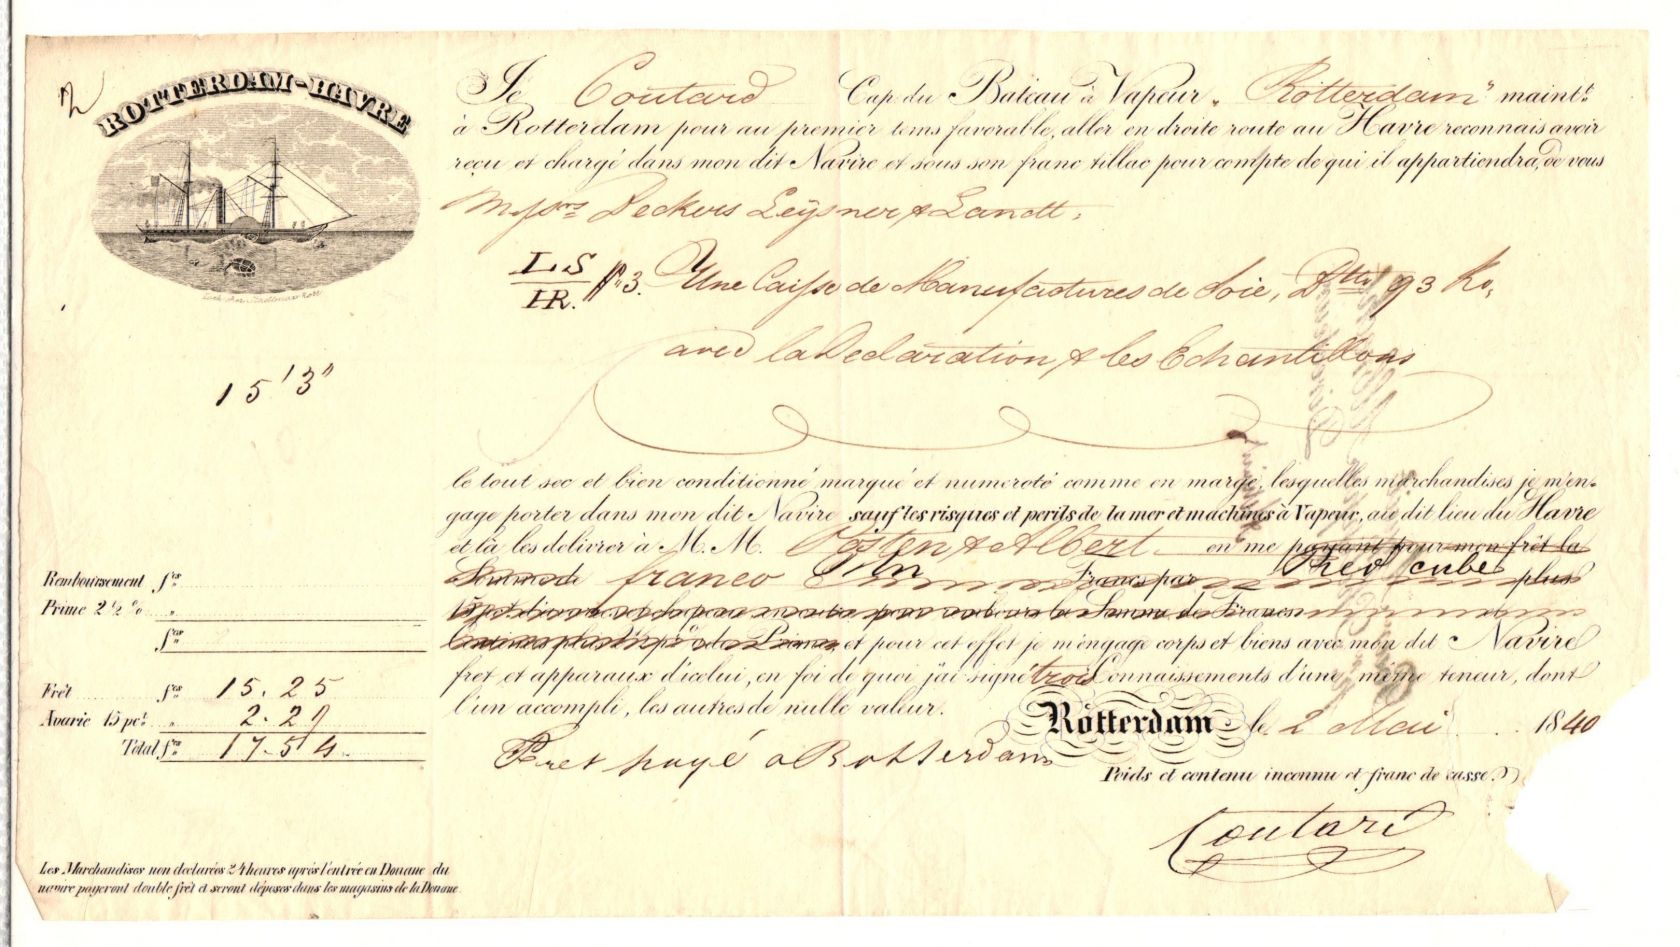 2
ROTTERDAM-HAVRE
Je Coutard Cap. du Bateau à Vapeur „Rotterdam" maint.t
à Rotterdam pour au premier tems favorable, aller en droite route au Havre reconnais avoir
reçu et chargé dans mon dit Navire et sous son franc tillac pour compte de qui il appartiendra, de vous
Messrs Deckers Leysner & Landt.
LS
IR. No 3. Une Caisse de Manufactures de Soie, 93 Ko.
avec la Declaration & les Echantillons
15' 3"
le tout sec et bien conditionné marqué et numeroté comme en marge, lesquelles marchandises je m'en-
gage porter dans mon dit Navire sauf les risques et perils de la mer et machines à Vapeur, au dit lieu du Havre
et là les delivrer à M. M. Osten & Albert en me payant pour mon frêt la
Somme de franco Francs par Pied cube plus
la Somme de Francs et
et pour cet effet je m'engage corps et biens avec mon dit Navire
fret et apparaux d'icelui, en foi de quoi j'ai signé trois Connaissements d'une même teneur, dont
l'un accompli, les autres de nulle valeur.
Rotterdam le 2 Mai 1840
Fret payé à Rotterdam
Poids et contenu inconnu et franc de casse.
Coutard
Remboursement frs
Prime 2 1/2 % „
frs
Frêt frs 15.25
Avarie 15 pct. „ 2.29
Total frs 17.54
Les Marchandises non declarées 24 heures après l'entrée en Douane du
navire payeront double frêt et seront déposes dans les magasins de la Douane.